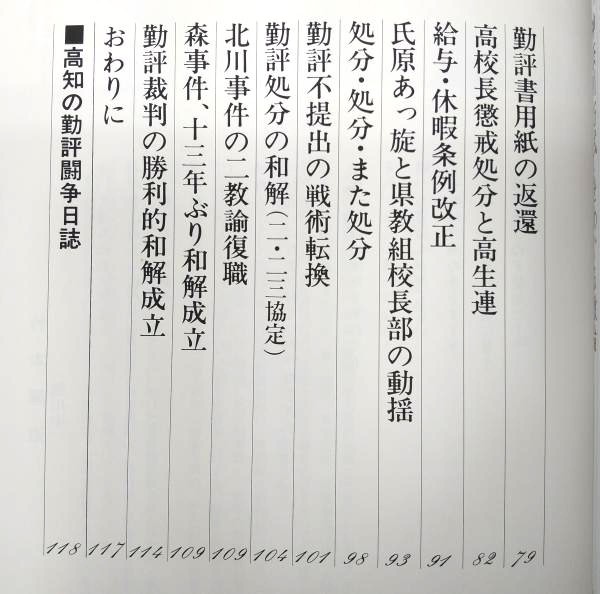 勤評書用紙の返還 79
高校長懲戒処分と高生連 82
給与・休暇条例改正 91
氏原あっ旋と県教組校長部の動揺 93
処分・処分・また処分 98
勤評不提出の戦術転換 101
勤評処分の和解（二・二三協定） 104
北川事件の二教諭復職 109
森事件、十三年ぶり和解成立 109
勤評裁判の勝利的和解成立 114
おわりに 117
■高知の勤評闘争日誌 118